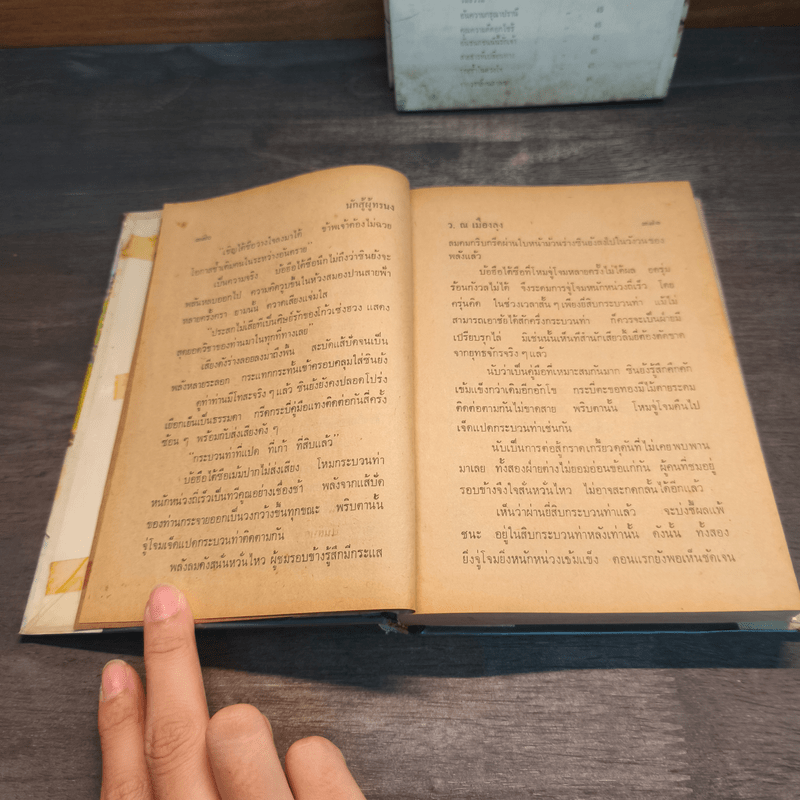 นักสู้ผู้ทรนง
"เชิญไต้ซือวางใจลงมาได้ ข้าพเจ้าต้องไม่ฉวย
โอกาสซ้ำเติมคนในระหว่างอันตราย"
เป็นความจริง บ้อฮือไต้ซือนึกไม่ถึงว่าซินยังจะ
พลันหลบออกไป ความคิดวูบขึ้นในห้วงสมองปานสายฟ้า
หลายครั้งครา ยามนั้น ตวาดเสียงแจ่มใส
"ประสกไม่เสียที่เป็นศิษย์รักของโก้วเซ่งฮวง แสดง
สุดยอดวิชาของท่านมาในทุกที่ทางเลย"
เสียงดังร่างลอยลงมาถึงพื้น สะบัดแส้ปัดจนเป็น
พลังหลายระลอก กระแทกกระทั้นเข้าครอบคลุมใส่ซินยัง
ดูท่าท่านมีโทสะจริง ๆ แล้ว ซินยังยังคงปลอดโปร่ง
เยือกเย็นเป็นธรรมดา กรีดกระบี่คู่มือแทงติดต่อกันสี่ครั้ง
ซ้อน ๆ พร้อมกับส่งเสียงดัง ๆ
"กระบวนท่าที่แปด ที่เก้า ที่สิบแล้ว"
บ้อฮือไต้ซือเม้มปากไม่ส่งเสียง โหมกระบวนท่า
หนักหน่วงถี่เร็วเป็นทวีคูณอย่างเชื่องช้า พลังจากแส้ปัด
ของท่านกระจายออกเป็นวงกว้างขึ้นทุกขณะ พริบตานั้น
จู่โจมเจ็ดแปดกระบวนท่าติดตามกัน
พลังลมดังสนั่นหวั่นไหว ผู้ชมรอบข้างรู้สึกมีกระแส
ว. ณ เมืองลุง
ลมคมกริบกรีดผ่านใบหน้า ม้วนร่างซินยังสลับไปในรังวนของ
พลังแล้ว
บ้อฮือไต้ซือที่โหมจู่โจมหลายครั้งไม่ได้ผล อดรุ่ม
ร้อนกังวลไม่ได้ จึงระดมการจู่โจมหนักหน่วงถี่เร็ว โดย
ครุ่นคิด ในช่วงเวลาสั้น ๆ เพียงยี่สิบกระบวนท่า แม้ไม่
สามารถเอาชัยได้สักครึ่งกระบวนท่า ก็ควรจะเป็นฝ่ายมี
เปรียบรุกไล่ มิเช่นนั้นเห็นที่สำนักเสียวลิ้มยี่ต้องตัดขาด
จากยุทธจักรจริง ๆ แล้ว
นับว่าเป็นคู่มือที่เหมาะสมกันมาก ซินยังรู้สึกคึกคัก
เข้มแข็งกว่าเดิมอีกอักโข กระบี่คะยอทองมีไม้ตายระดม
ติดต่อตามกันไม่ขาดสาย พริบตานั้น โหมจู่โจมคืนไป
เจ็ดแปดกระบวนท่าเช่นกัน
นับเป็นการต่อสู้กราดเกรี้ยวดุดันที่ไม่เคยพบพาน
มาเลย ทั้งสองฝ่ายต่างไม่ยอมอ่อนข้อแก่กัน ผู้คนที่ชมอยู่
รอบข้างจึงใจสั่นหวั่นไหว ไม่อาจสะกดกลั้นได้อีกแล้ว
เห็นว่าผ่านยี่สิบกระบวนท่าแล้ว จะบ่งชี้ผลแพ้
ชนะ อยู่ในสิบกระบวนท่าหลังเท่านั้น ดังนั้น ทั้งสอง
ยิ่งจู่โจมยิ่งหนักหน่วงเข้มแข็ง ตอนแรกยังพอเห็นชัดเจน